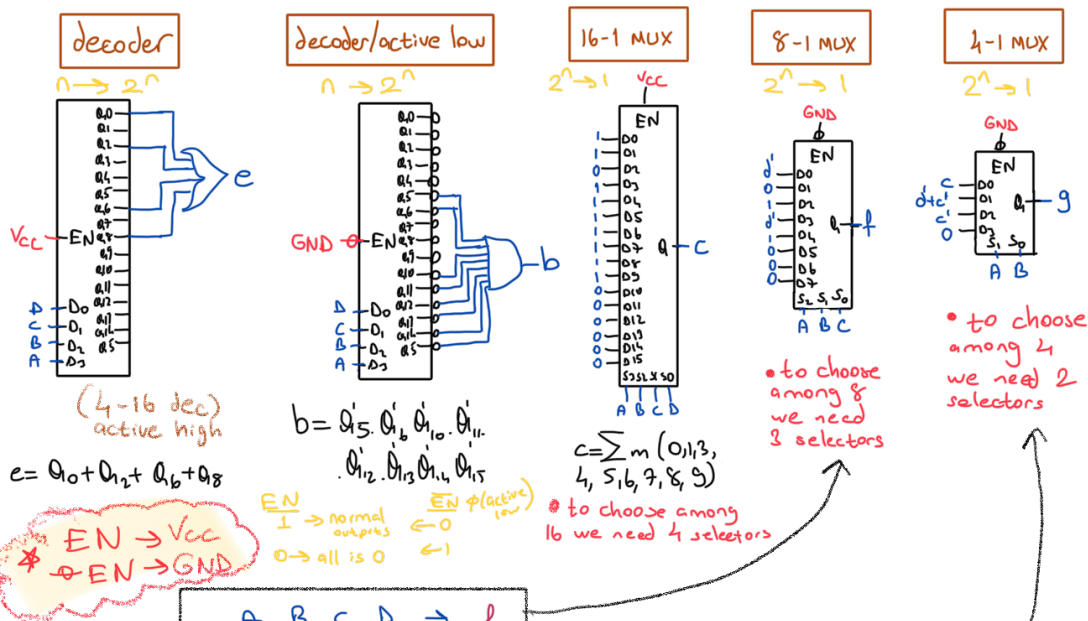 decoder
n → 2ⁿ
Q0
Q1
Q2
Q3
Q4
Q5
Q6
Q7
Q8
Q9
Q10
Q11
Q12
Q13
Q14
Q15
Vcc
EN
D D0
C D1
B D2
A D3
e
(4-16 dec)
active high
e = Q0 + Q2 + Q6 + Q8
* EN → Vcc
EN → GND
decoder/active low
n → 2ⁿ
Q0
Q1
Q2
Q3
Q4
Q5
Q6
Q7
Q8
Q9
Q10
Q11
Q12
Q13
Q14
Q15
GND
EN
D D0
C D1
B D2
A D3
b
b = Q'5 . Q'6 Q'10 . Q'11 .
. Q'12 . Q'13 Q'14 Q'15
EN EN (active low)
1 → normal outputs ← 0
0 → all is 0 ← 1
16-1 MUX
2ⁿ → 1
Vcc
EN
1 D0
1 D1
0 D2
1 D3
1 D4
1 D5
1 D6
1 D7
1 D8
1 D9
0 D10
0 D11
0 D12
0 D13
0 D14
0 D15
Q c
S3 S2 S1 S0
A B C D
c = ∑m (0,1,3,
4, 5,6, 7, 8, 9)
• to choose among
16 we need 4 selectors
8-1 MUX
2ⁿ → 1
GND
EN
d' D0
0 D1
1 D2
d' D3
1 D4
0 D5
0 D6
0 D7
Q f
S2 S1 S0
A B C
• to choose
among 8
we need
3 selectors
4-1 MUX
2ⁿ → 1
GND
EN
c D0
d'+c' D1
c' D2
0 D3
Q g
S1 S0
A B
• to choose
among 4
we need 2
selectors
A B C D →